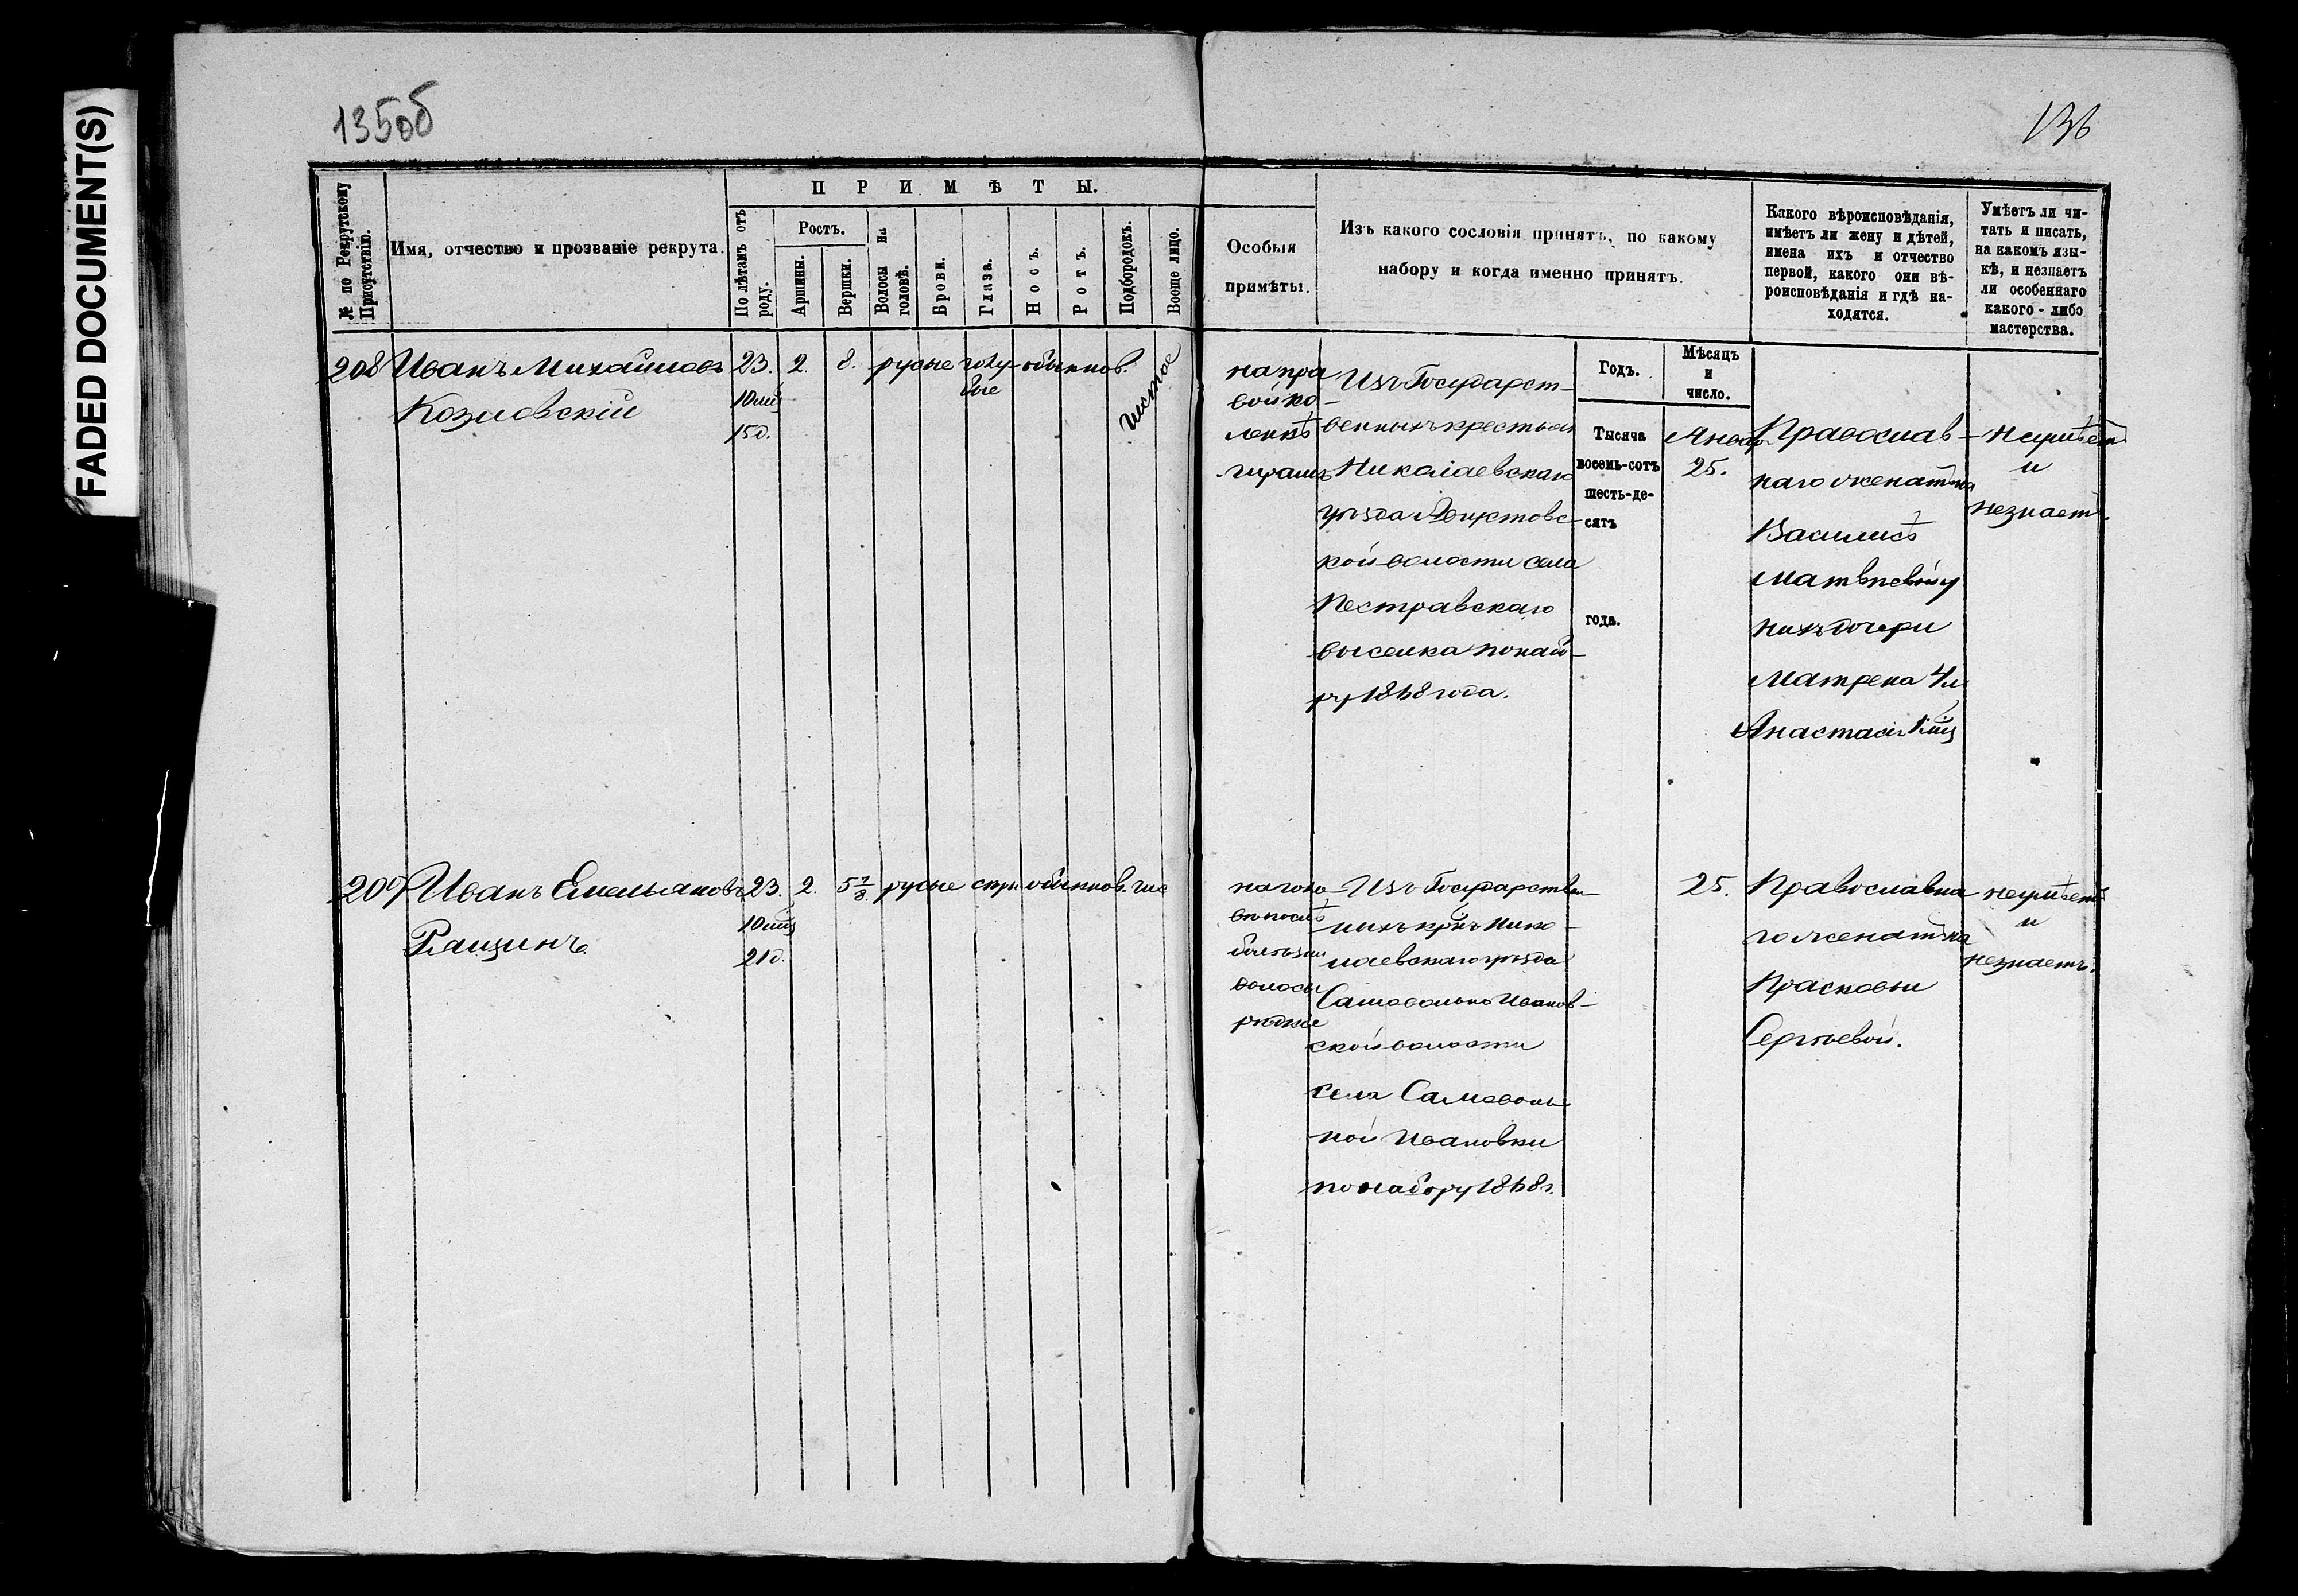 FADED DOCUMENT(S)
135об
136
№ по Рекрутскому
Присутствію.
Имя, отчество и прозваніе рекрута.
ПРИМѢТЫ.
По лѣтамъ отъ
роду.
Ростъ.
Аршины.
Вершки.
Волосы на
головѣ.
Брови.
Глаза.
Носъ.
Ротъ.
Подбородокъ.
Вообще лицо.
Особыя
примѣты.
Изъ какого сословія принятъ, по какому
набору и когда именно принятъ.
Какого вѣроисповѣданія,
имѣетъ ли жену и дѣтей,
имена ихъ и отчество
первой, какого они вѣ-
роисповѣданія и гдѣ на-
ходятся.
Умѣетъ ли чи-
тать и писать,
на какомъ язы-
кѣ, и незнаетъ
ли особеннаго
какого-либо
мастерства.
Годъ.
Мѣсяцъ
и
число.
Тысяча
восемь-сотъ
шесть-де-
сятъ
года.
208 Иванъ Михайловъ
Козловскій
23.
10 мц
15 д.
2. 8. русые голу-
бые
обыкнов.
чистое
на пра
вой ко-
ленкѣ
шрамъ
Изъ Государст-
венныхъ крестьян
Николаевскаго
уѣзда
кой волости села
Пестравскаго
выселка по набо-
ру 1868 года.
Январ
25.
Православ-
наго женатъ на
Василисѣ
Матвѣевой у
нихъ дочери
Матрена 4 л
Анастасія
неумѣетъ
и
незнаетъ.
209 Иванъ Емельяновъ
23.
10 мц
21 д.
2. 5 7/8. русые обыкнов. чис
на голо
вѣ послѣ
болѣзни
волосы
рѣдкіе
Изъ Государствен-
ныхъ крнъ Нико-
лаевскаго уѣзда
Самовольно Иванов-
ской волости
села Самоволь-
ной Ивановки
по набору 1868 г.
25.
Православна
го женатъ на
Прасковьи
Сергѣевой.
неумѣетъ
и
незнаетъ.